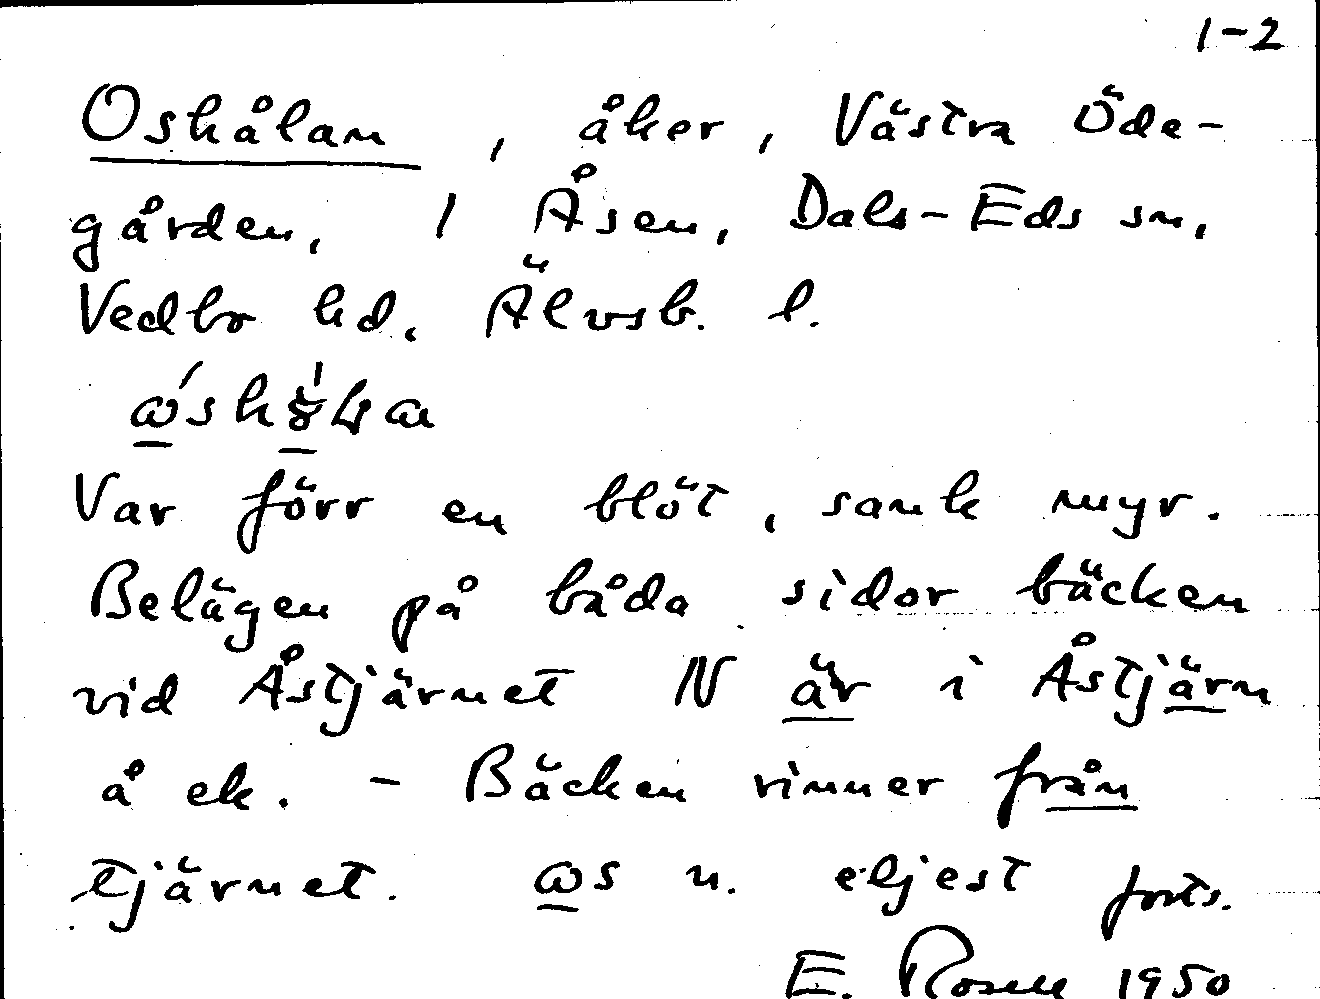 1-2
Oskålan, åker, Västra Öde-
gården, 1 Åsen, Dals-Eds sn,
Vedbo hd. Älvsb. l.
Var förr en blöt, sank myr.
Belägen på båda sidor bäcken
vid Åstjärnet N är i Åstjärn
å ek. - Bäcken rinner från
tjärnet. n. eljest forts.
E. Rosell 1950